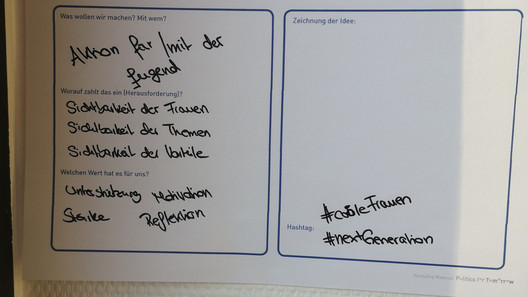 Was wollen wir machen? Mit wem?
Aktion für / mit der
Jugend
Worauf zahlt das ein (Herausforderung)?
Sichtbarkeit der Frauen
Sichtbarkeit der Themen
Sichtbarkeit der Vorteile
Welchen Wert hat es für uns?
Unterstützung Motivation
Stärke Reflexion
Zeichnung der Idee:
#cooleFrauen
Hashtag:
#nextGeneration
Politics for Tomorrow